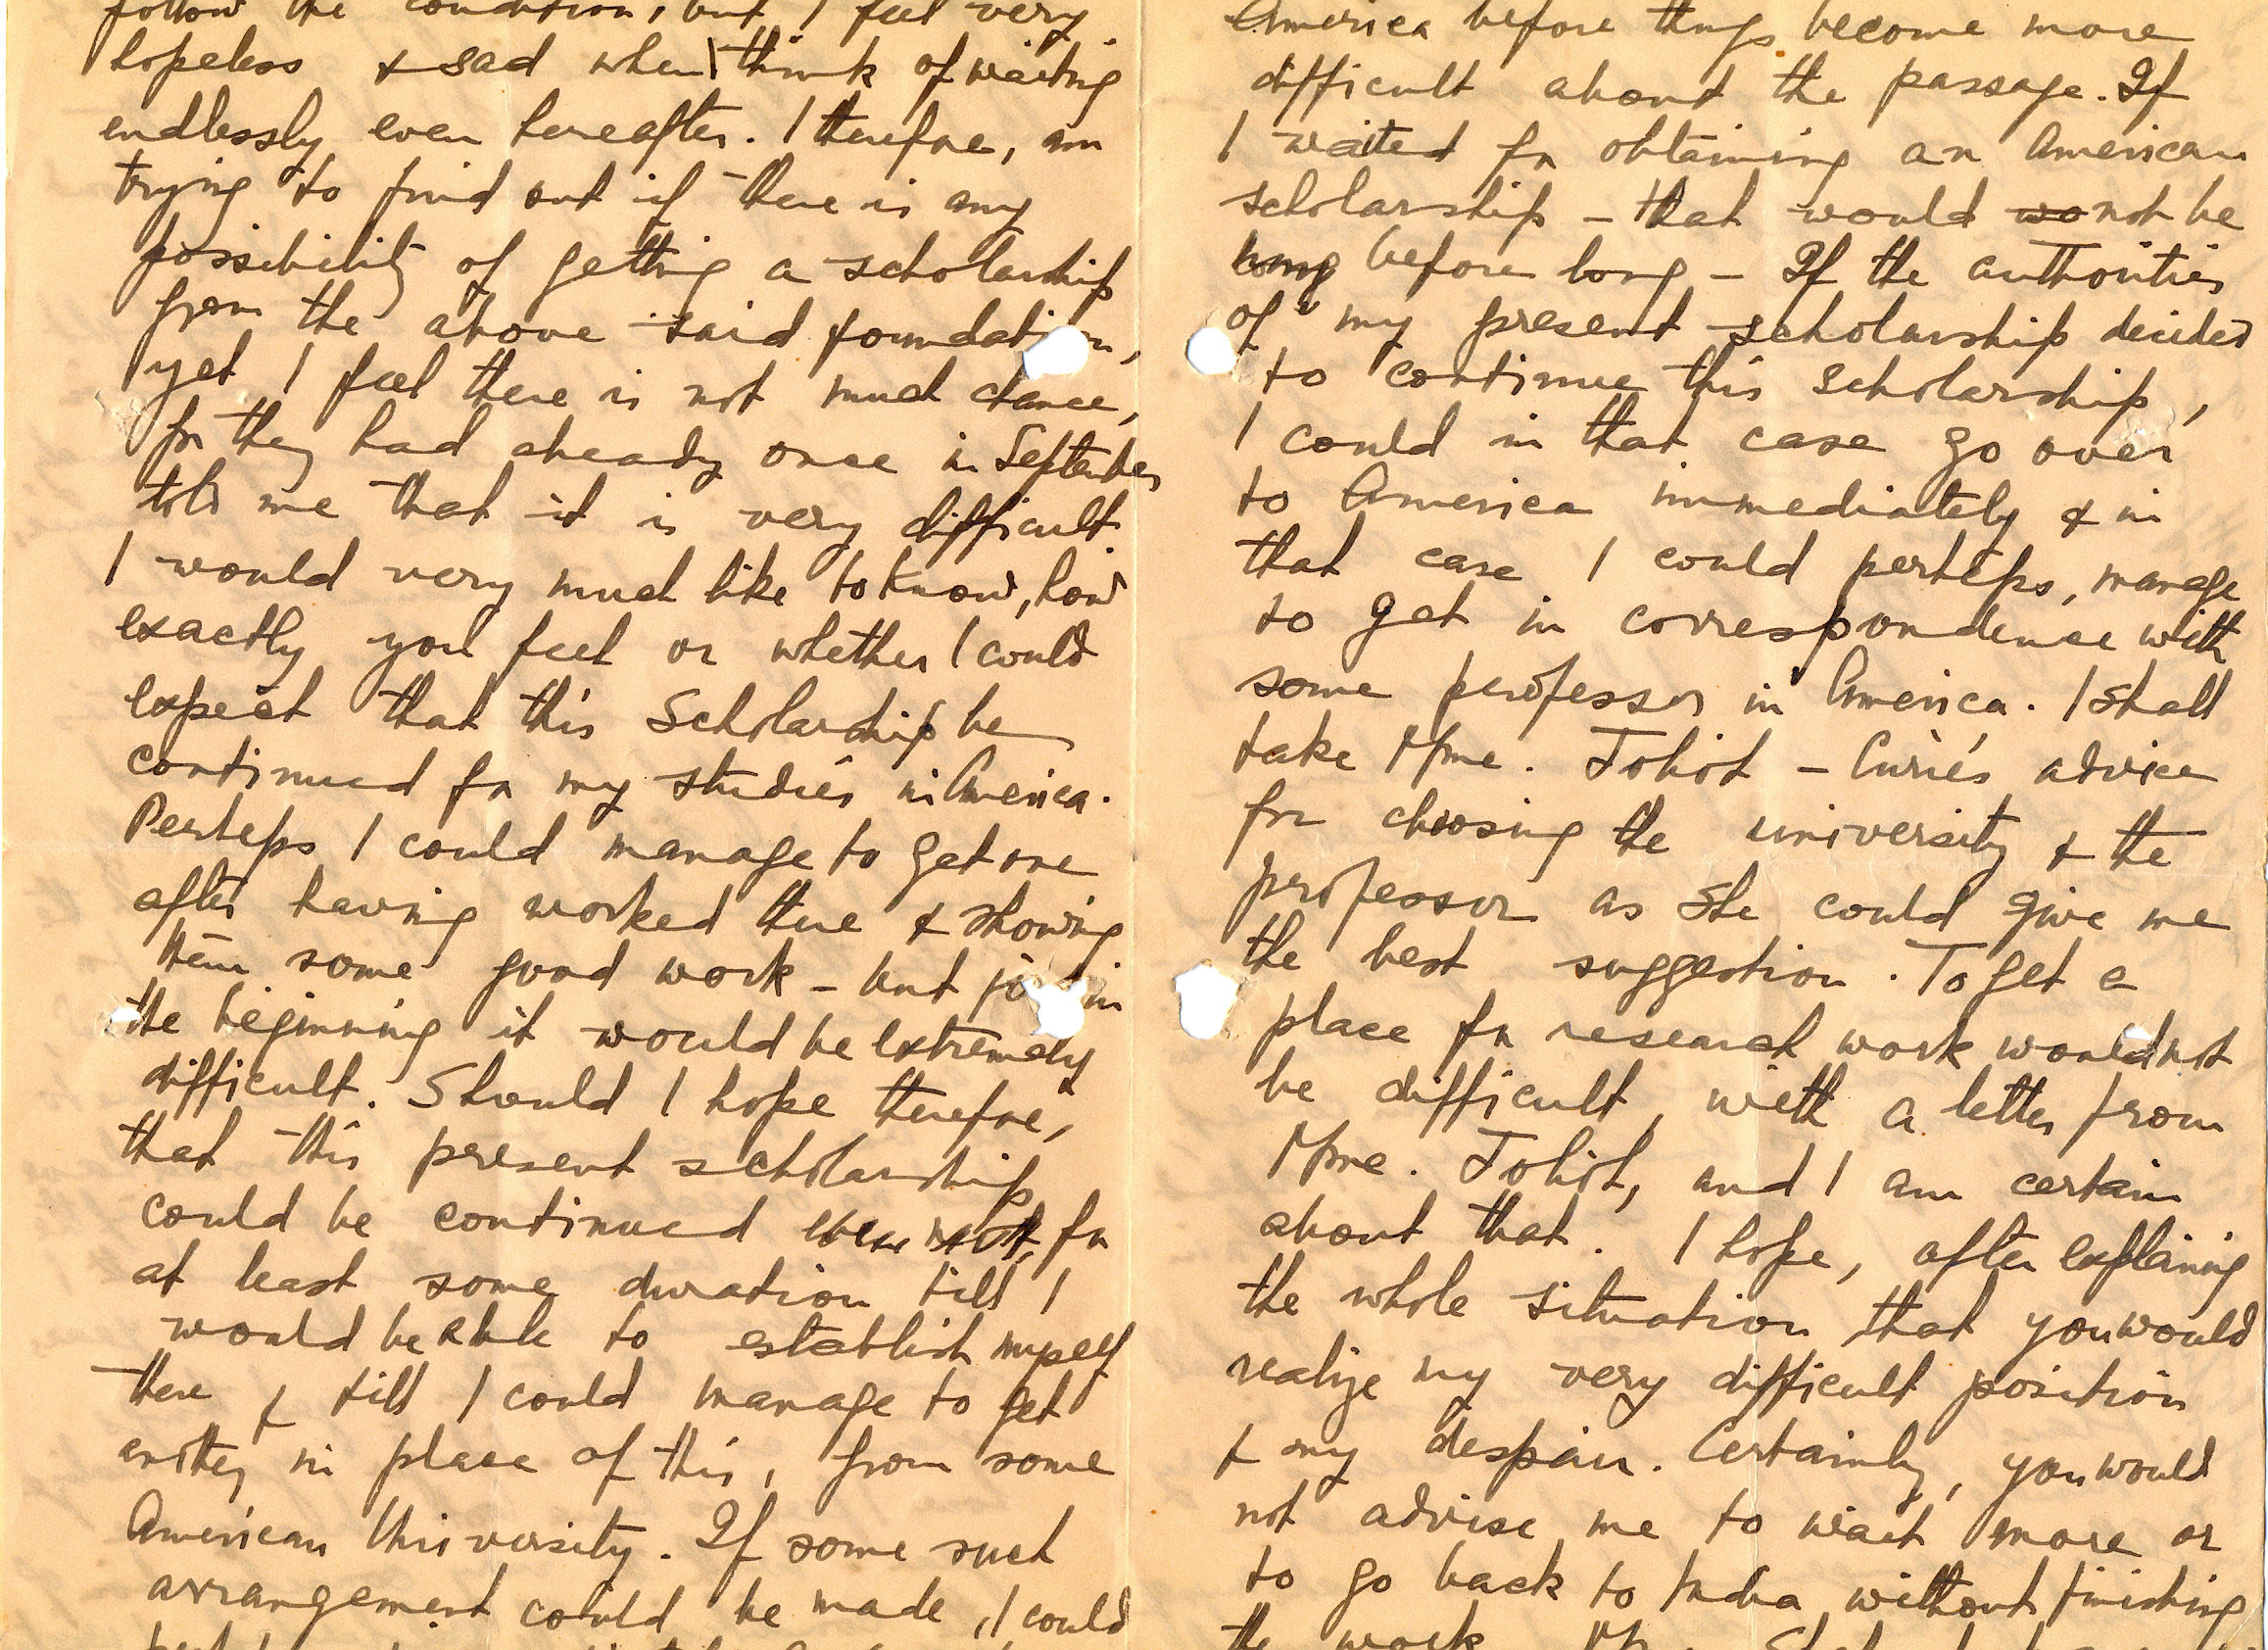 follow the condition, but I feel very
hopeless & sad when I think of waiting
endlessly even hereafter. I therefore, am
trying to find out if there is any
possibility of getting a scholarship
from the above said foundation,
yet I feel there is not much chance,
for they had already once in September
told me that it is very difficult.
I would very much like to know, how
exactly you feel or whether I could
expect that this Scholarship be
continued for my studies in America.
Perhaps I could manage to get one
after having worked there & showing
them some good work – but in
the beginning it would be extremely
difficult. Should I hope therefore,
that this present scholarship
could be continued for
at least some duration till I
would be able to establish myself
there & till I could manage to get
another in place of this, from some
American University. If some such
arrangement could be made, I could
America before things become more
difficult about the passage. If
I waited for obtaining an American
scholarship – that would wo not be
long before long – If the authorities
of my present scholarship decided
to continue this scholarship,
I could in that case go over
to America immediately & in
that case I could perheps, manage
to get in correspondence with
some professor in America. I shall
take Mme. Joliot – Curie's advice
for choosing the university & the
professor as she could give me
the best suggestion. To get a
place for research work would not
be difficult, with a letter from
Mme. Joliot, and I am certain
about that. I hope, after explaining
the whole situation that you would
realize my very difficult position
& my despair. Certainly, you would
not advise me to wait more or
to go back to India without finishing
the work.